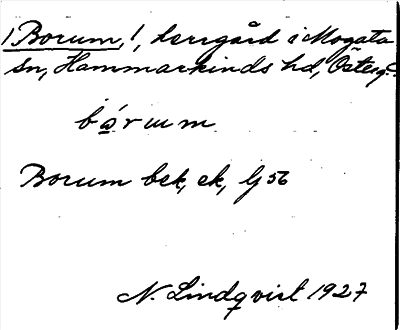 1 Borum, !, herrgård i Mogata
sn, Hammarkinds hd, Österg.
bórum
Borum bek, ek, lj 56
N. Lindqvist 1927